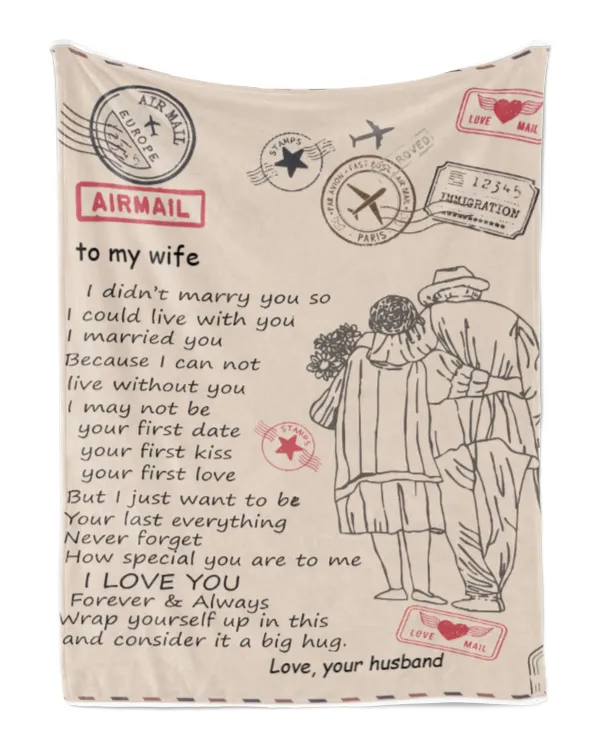 AIR MAIL
EUROPE
STAMPS
ROVED
LOVE MAIL
AIRMAIL
PAR AVION • FAST
AIR MAIL
PARIS
12345
IMMIGRATION
to my wife
I didn't marry you so
I could live with you
I married you
Because I can not
live without you
I may not be
your first date
your first kiss
your first love
But I just want to be
Your last everything
Never forget
How special you are to me
I LOVE YOU
Forever & Always
Wrap yourself up in this
and consider it a big hug.
Love, your husband
STAMPS
LOVE MAIL